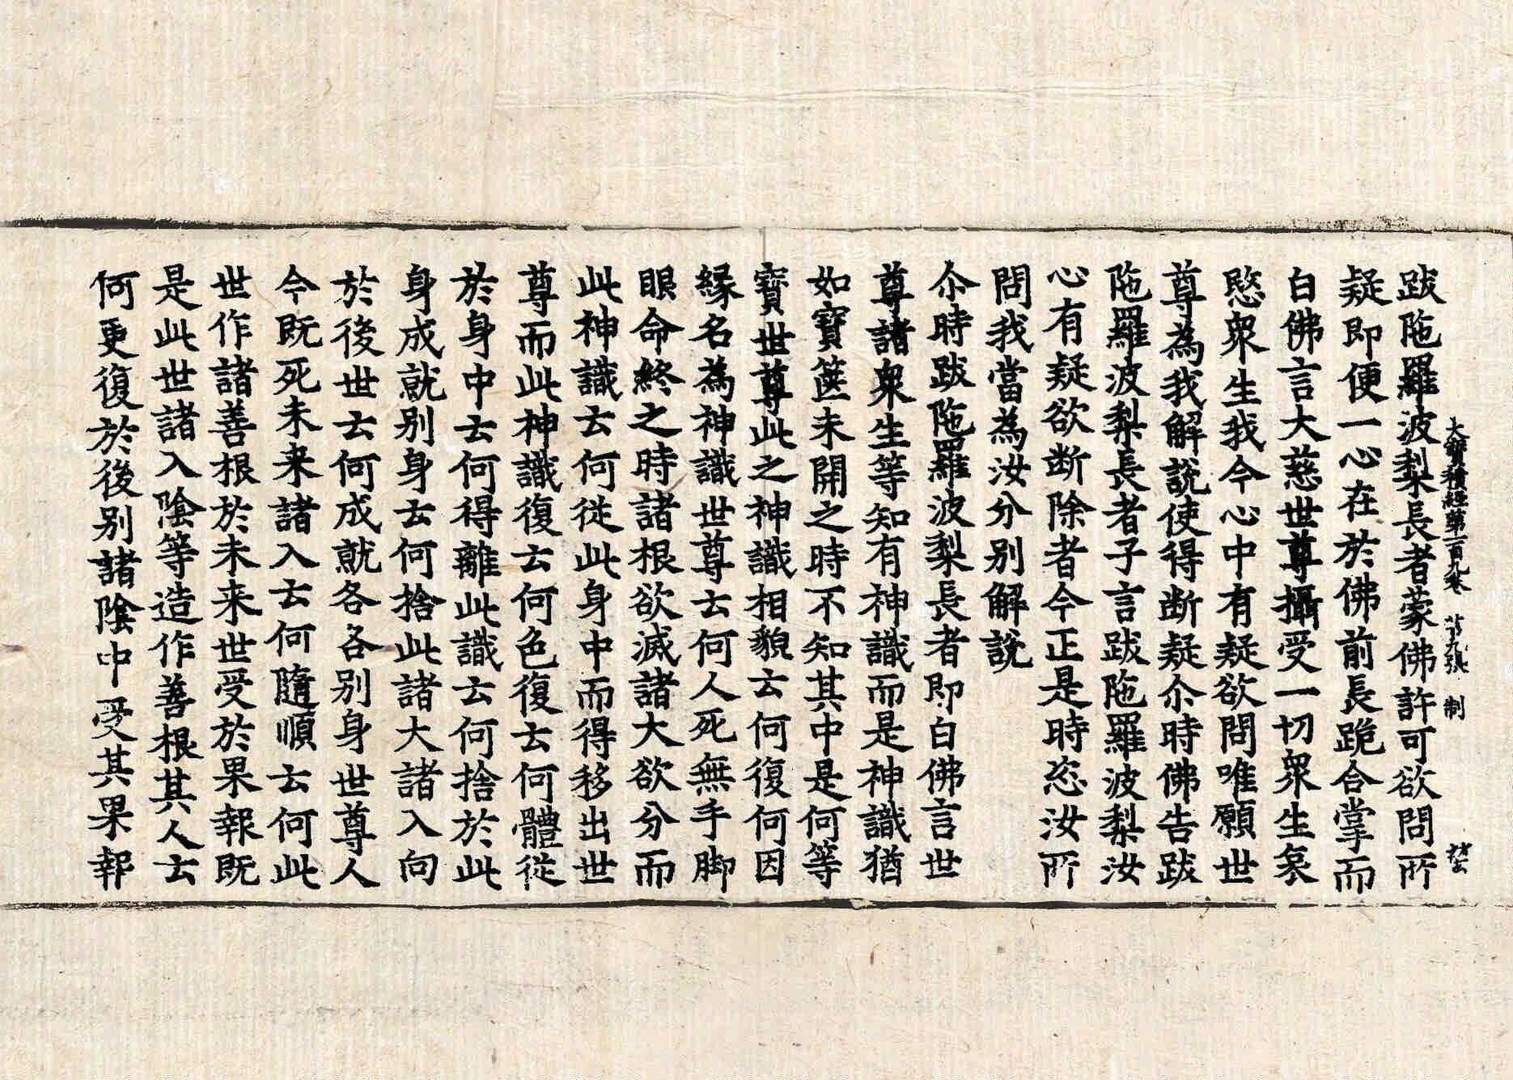 大寶積經第一百九卷 第九張 制
跋陁羅波梨長者蒙佛許可欲問所
疑即便一心在於佛前長跪合掌而
白佛言大慈世尊攝受一切衆生哀
愍衆生我今心中有疑欲問唯願世
尊為我解說使得斷疑尒時佛告跋
陁羅波梨長者子言跋陁羅波梨汝
心有疑欲断除者今正是時恣汝所
問我當為汝分別解說
尒時跋陁羅波梨長者即白佛言世
尊諸衆生等知有神識而是神識猶
如寶篋未開之時不知其中是何等
寳世尊此之神識相貌云何復何因
縁名為神識世尊云何人死無手脚
眼命終之時諸根欲滅諸大欲分而
此神識云何従此身中而得移出世
尊而此神識復云何色復云何體從
於身中云何得離此識云何捨於此
身成就别身云何捨此諸大諸入向
於後世云何成就各各别身世尊人
今既死未来諸入云何隨順云何此
世作諸善根於未来世受於果報既
是此世諸入陰等造作善根其人云
何更復於後别諸陰中受其果報